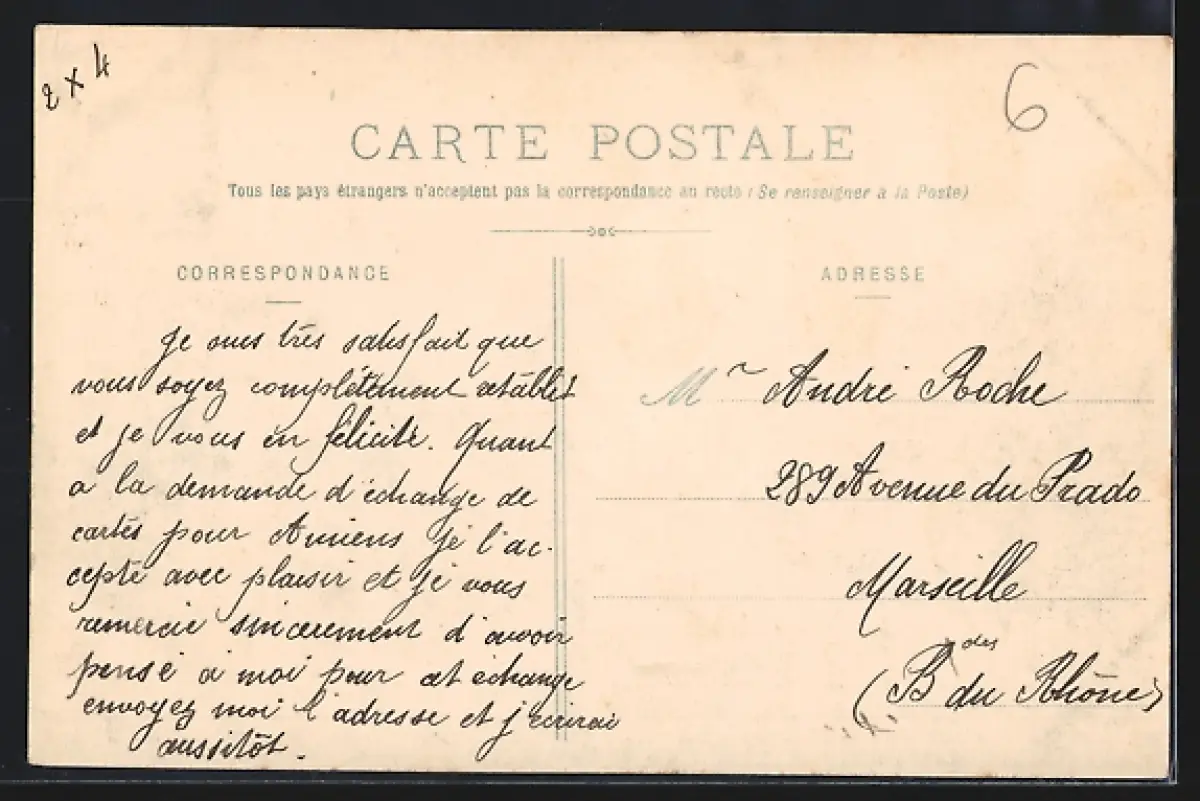 2 x 4
6
CARTE POSTALE
Tous les pays étrangers n'acceptent pas la correspondance au recto (Se renseigner à la Poste)
CORRESPONDANCE
Je suis très satisfait que
vous soyez complètement rétablit
et je vous en félicite. Quant
a la demande d'échange de
cartes pour Amiens je l'ac-
cepte avec plaisir et je vous
remercie sincerement d'avoir
pensé a moi pour cet echange
envoyez moi l'adresse et j'ecrirai
aussitôt.
ADRESSE
Mr André Roche
289 Avenue du Prado
Marseille
(B des du Rhône)